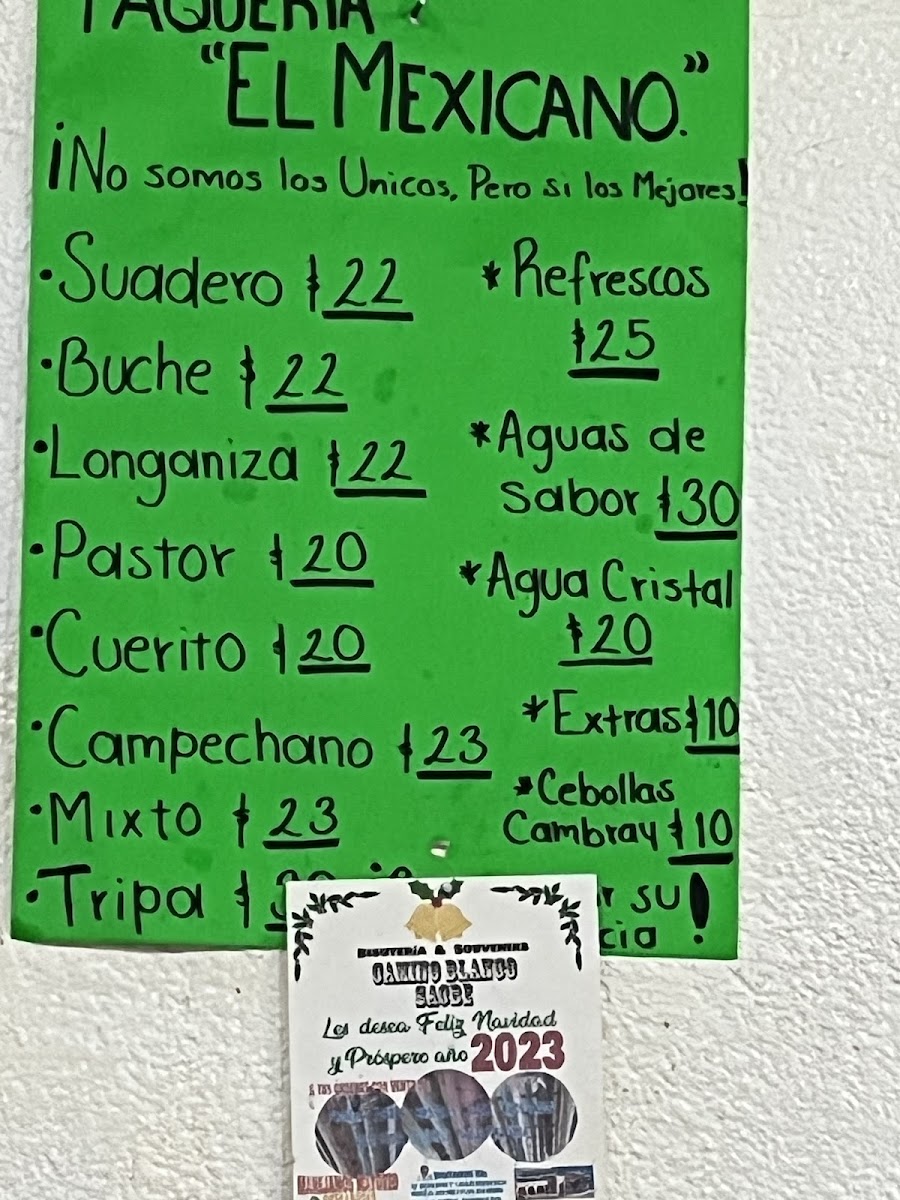 TAQUERÍA
"EL MEXICANO."
¡No somos los Unicos, Pero si los Mejores!
·Suadero $22
·Buche $22
·Longaniza $22
·Pastor $20
·Cuerito $20
·Campechano $23
·Mixto $23
·Tripa $
*Refrescos
$25
*Aguas de
sabor $30
*Agua Cristal
$20
*Extras $10
*Cebollas
Cambray $10
r su
cia !
BISUTERÍA & SOUVENIRS
CAMINO BLANCO
SACBE
Les desea Feliz Navidad
y Próspero año 2023